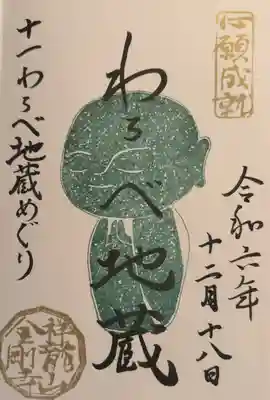 心願成就
令和六年
十二月十八日
わらべ地蔵
十一わらべ地蔵めぐり